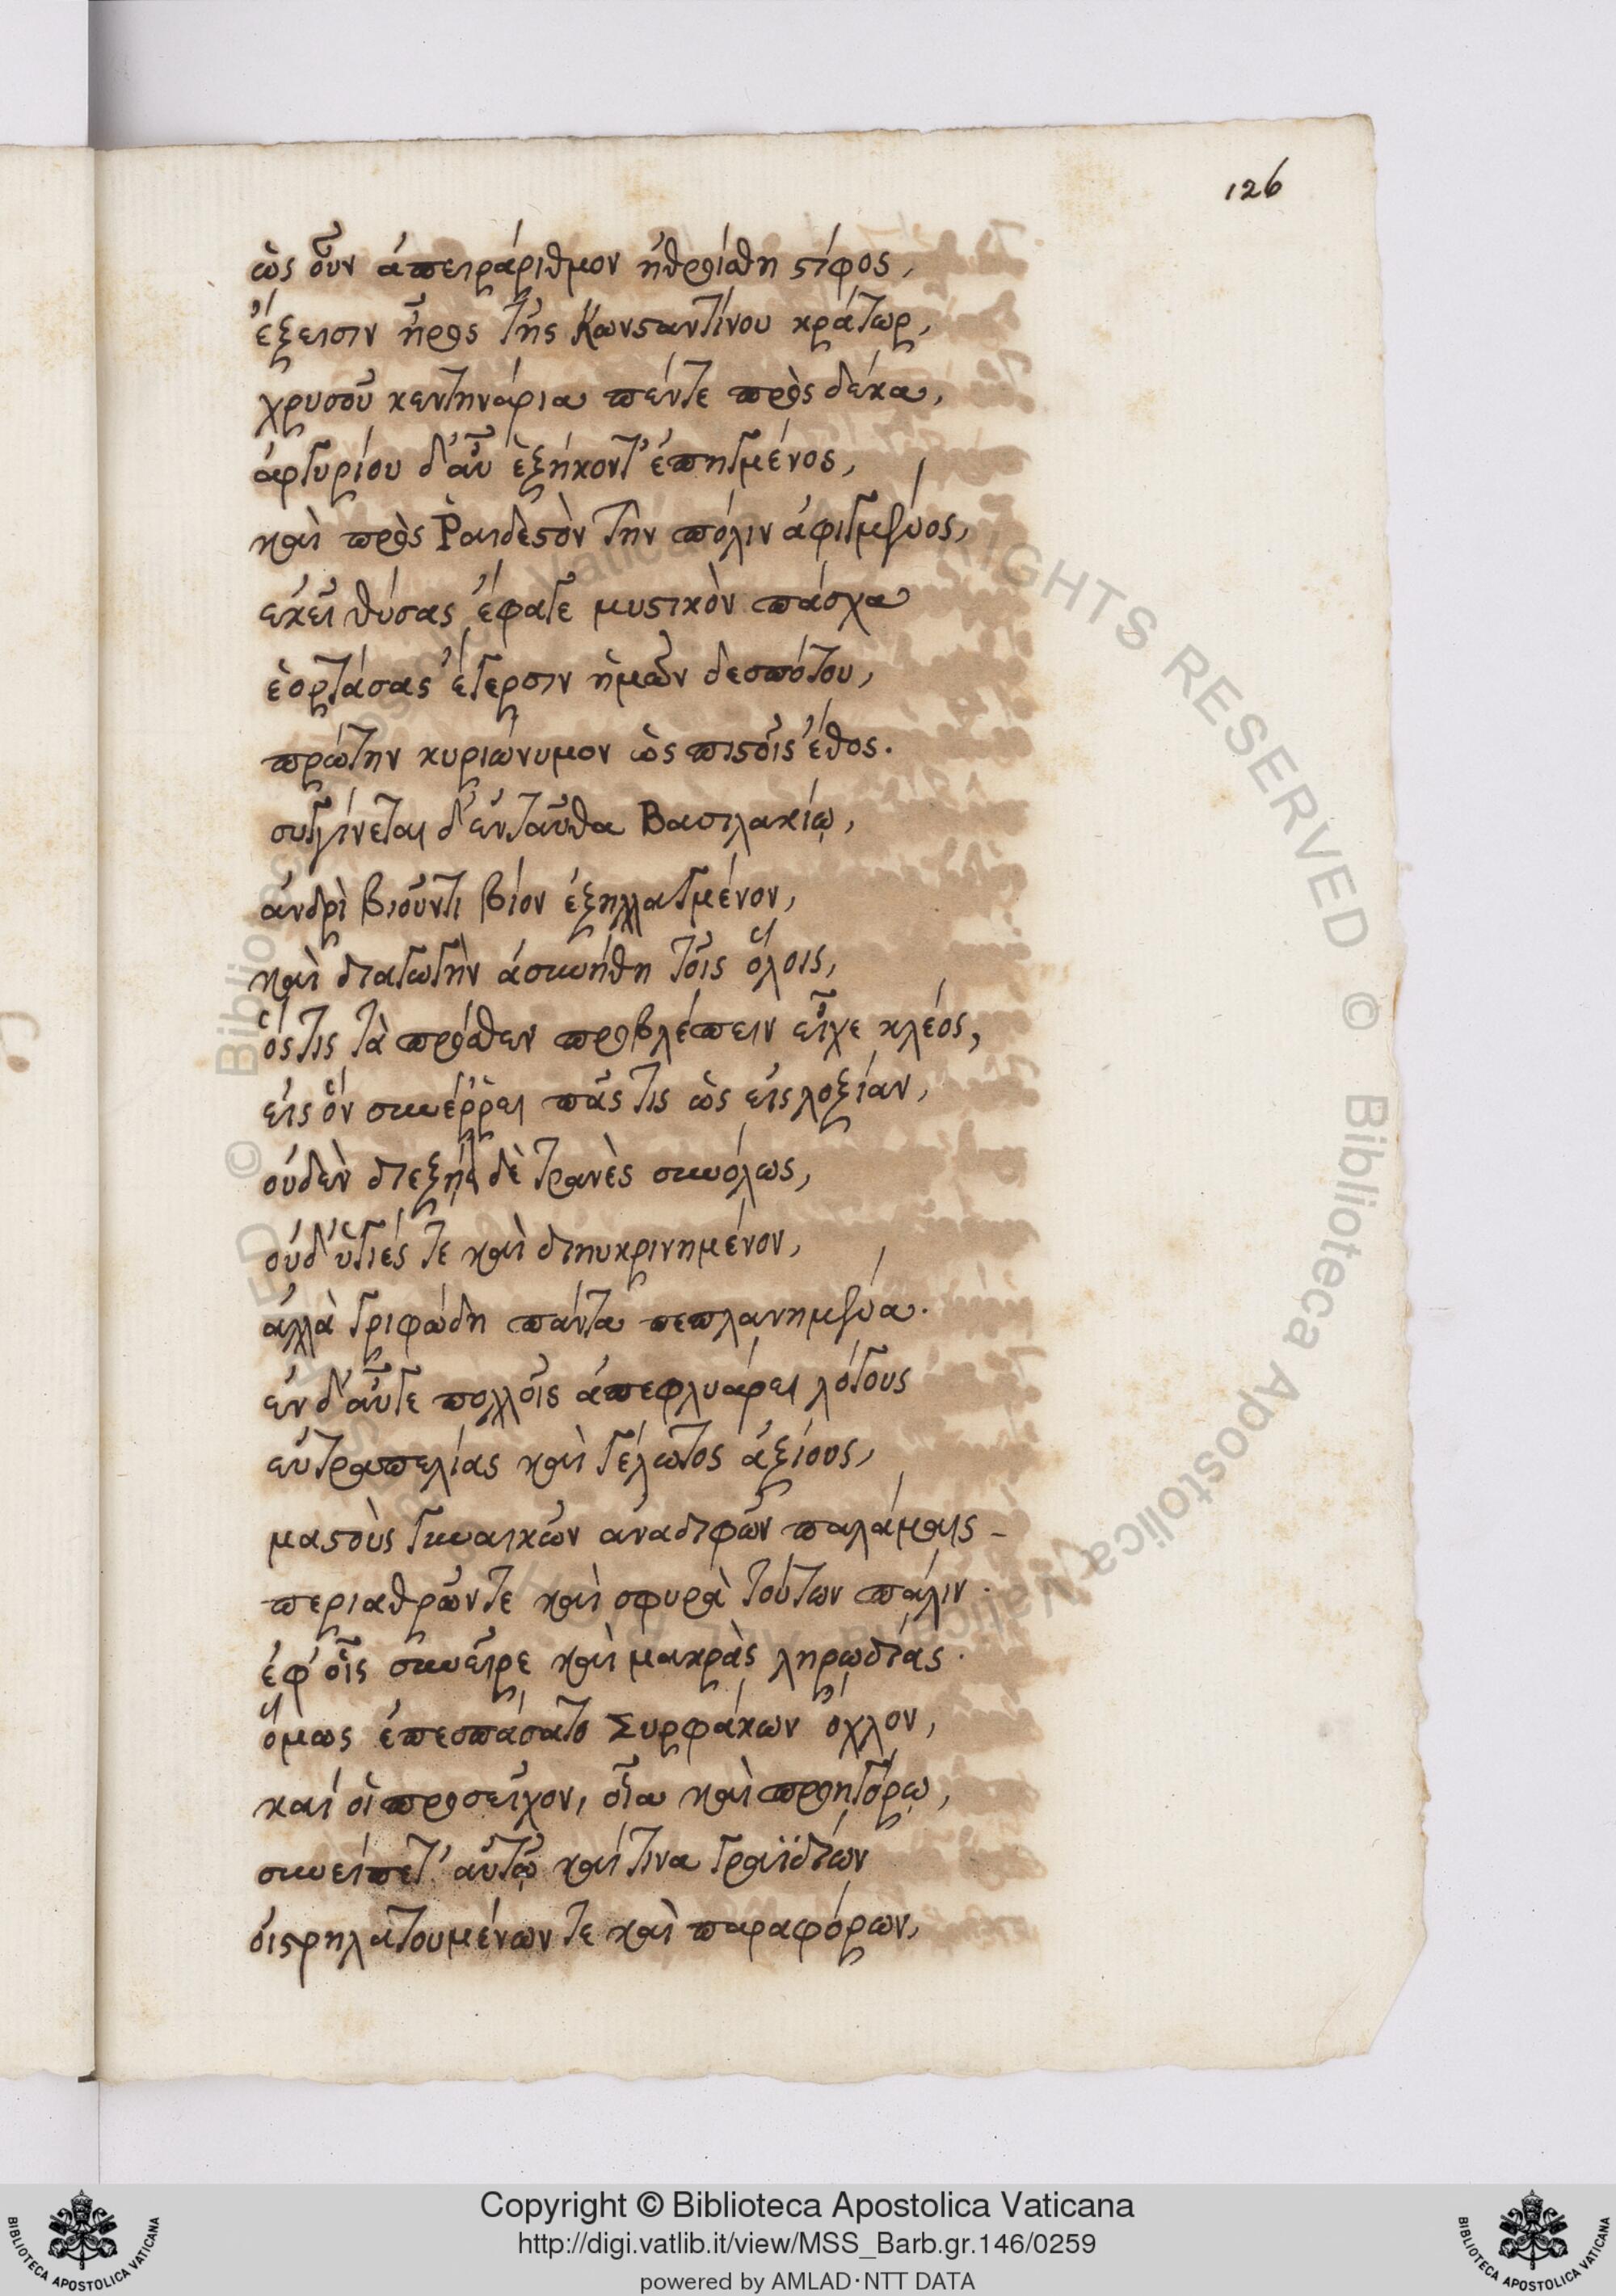 126
ὡς οὖν ἀπειράριθμον ἠθροίσθη στίφος,
ἔξεισιν ἦρος τῆς Κωνσταντίνου κράτωρ,
χρυσοῦ κεντηνάρια πέντε πρὸς δέκα,
ἀργυρίου δ' αὖ ἑξήκοντ' ἐπηγμένος,
καὶ πρὸς Ῥαιδεστὸν τὴν πόλιν ἀφιγμένος,
εκεῖ θύσας ἔφαγε μυστικὸν πάσχα
ἑορτάσας ἔγερσιν ἡμῶν δεσπότου,
πρώτην κυριώνυμον ὡς πιστοῖς ἔθος.
συγγίνεται δ' ἐνταῦθα Βασιλακίῳ,
ἀνδρὶ βιοῦντι βίον ἐξηλλαγμένον,
καὶ διαγωγὴν ἀσυνήθη τοῖς ὅλοις,
ὅστις τὰ πρόσθεν προβλέπειν εἶχε κλέος,
εἰς ὃν συνέρρει πᾶς τις ὡς εἰς λοξίαν,
οὐδὲν διεξήει δὲ τρανὲς συνόλως,
οὐδ' ὑγιές τε καὶ διηυκρινημένον,
ἀλλὰ γριφώδη πάντα πεπλανημένα.
ἐν δ' αὖγε πολλοῖς ἀπεφλυάρει λόγους
εὐτραπελίας καὶ γέλωτος ἀξίους,
μαστοὺς γυναικῶν ἀναδιφῶν παλάμαις –
περιαθρῶν τε καὶ σφυρὰ τούτων πάλιν.
ἐφ' οἷς συνεῖρε καὶ μακρὰς ληρωδίας.
ὅμως ἐπεσπάσατο Συρφάκων ὄχλον,
καί οἱ προσεῖχον, οἷα καὶ προηγόρῳ,
συνείπετ' αὐτῷ καί τινα γραϊδίων
οἰστρηλατουμένων τε καὶ παραφόρων,
Copyright © Biblioteca Apostolica Vaticana
http://digi.vatlib.it/view/MSS_Barb.gr.146/0259
powered by AMLAD·NTT DATA
BIBLIOTECA APOSTOLICA VATICANA
BIBLIOTECA APOSTOLICA VATICANA